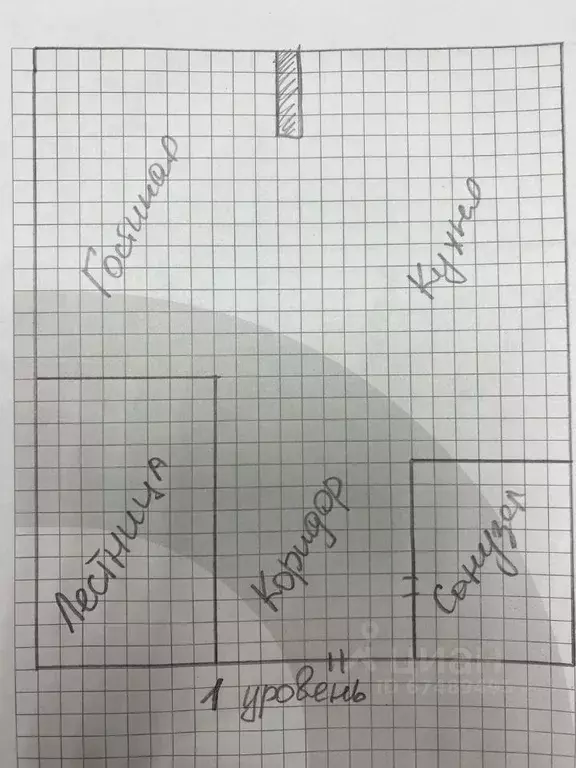 Гостиная
Кухня
Лестница
Коридор
Санузел
циан
1 уровень